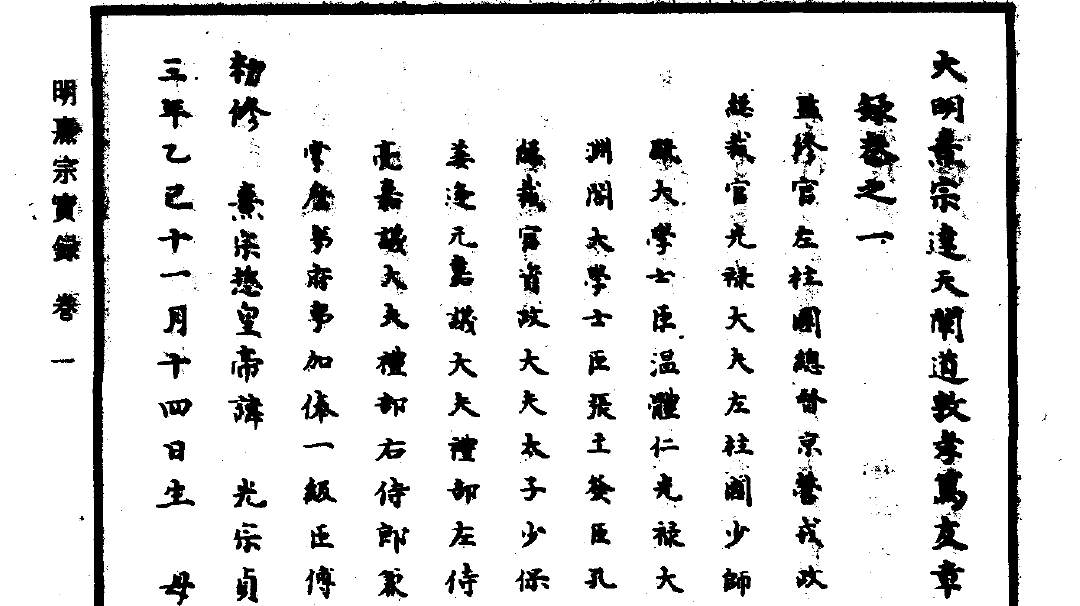 大明熹宗達天闡道敦孝篤友章
錄卷之一
監修官左柱國總督京營戎政
總裁官光祿大夫左柱國少師
殿大學士臣温體仁光祿大
淵閣大學士臣張至發臣孔
總裁官資政大夫太子少保
姜逢元嘉議大夫禮部左侍
嘉議大夫禮部右侍郎兼
掌詹事府事加俸一級臣傅
勑修 熹宗悊皇帝諱 光宗貞
三年乙巳十一月十四日生 母
明熹宗實錄 卷 一